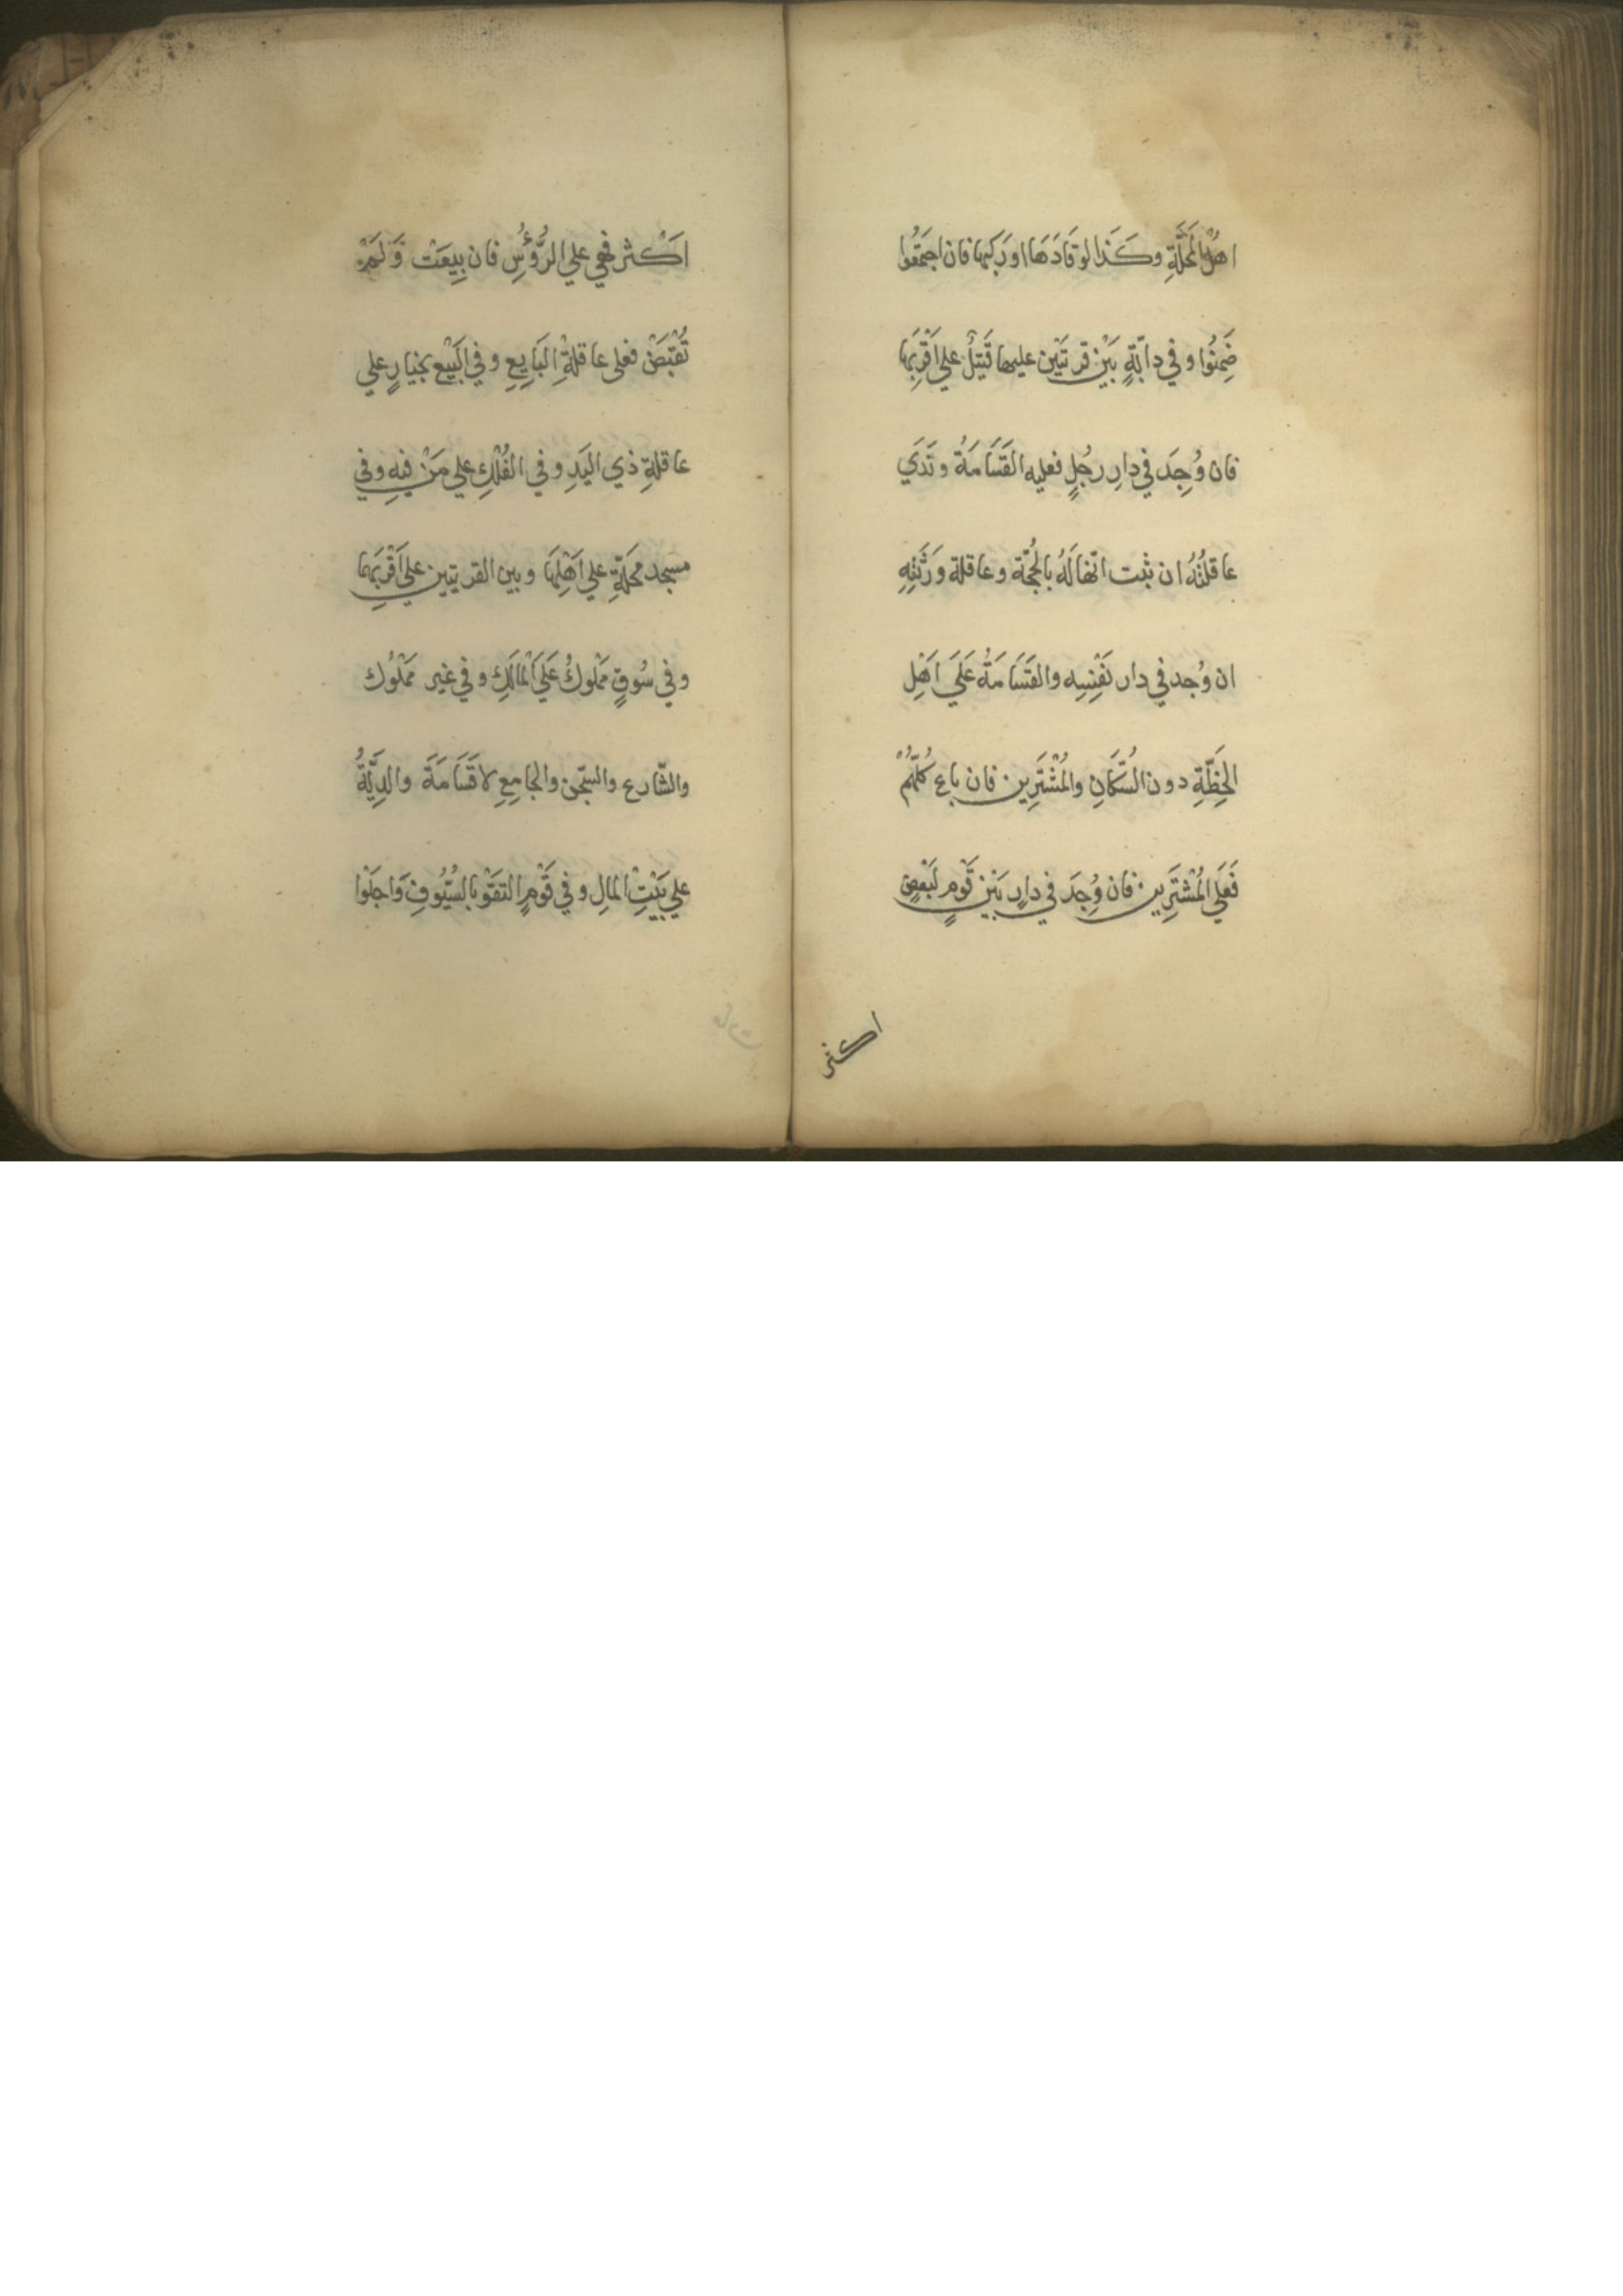 اهْلُ المَحَلَّةِ وكَذا لو قَادَهَا او رَكبها فان اجتَمَعُوا
ضَمِنُوا وفي دابّةٍ بَيْن قريَتَيْن عليها قَتِيْلٌ علي اَقْرَبِهَا
فان وُجِدَ في دارِ رجُلٍ فعليه القَسَامَةُ وتَدِي
عاقلتُهُ ان ثبت انّها لَهُ بالحُجّة وعاقلة وَرَثَتِهِ
ان وُجد في دار نَفْسِه والقَسَامَةُ عَلَي اَهْلِ
الخِطَّةِ دون السُّكّانِ والمُشْتَرِين فان باع كُلّهُمْ
فَعَلَي المُشْتَرِين فان وُجِدَ في دارٍ بَيْن قَومٍ لبَعْضٍ
اكثر
اَكْثر فهي علي الرُّؤُسِ فان بِيعَت وَلَمْ
تُقْبَضْ فعلى عاقلةِ البَايِعِ وفي البَيْع بخيارٍ علي
عاقلةِ ذي اليَدِ وفي الفُلْكِ علي مَنْ فيهِ وفي
مسجد مَحَلّةٍ علي اَهْلِهَا وبين القريتين علي اَقْرَبِهِمَا
وفي سُوقٍ مَمْلوكٍ عَلَي المَالكِ وفي غير مَمْلُوك
والشّارع والسّجن والجامِعِ لا قَسَامَةَ والدِّيَةُ
علي بَيْتِ المالِ وفي قَوْمٍ التقَوْا بالسُّيُوفِ وَاجلَوْا